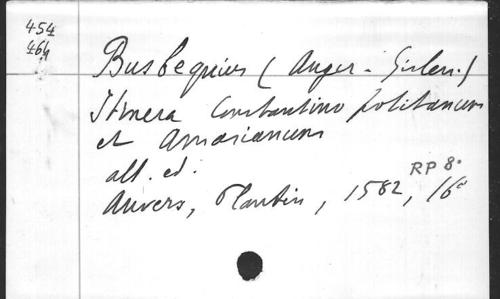 454
464
Busbequius (Auger-Gislen.)
Itinera Constantinopolitanum
et Amasianum
alt. ed.
RP 8°
Anvers, Plantin, 1582, 16°